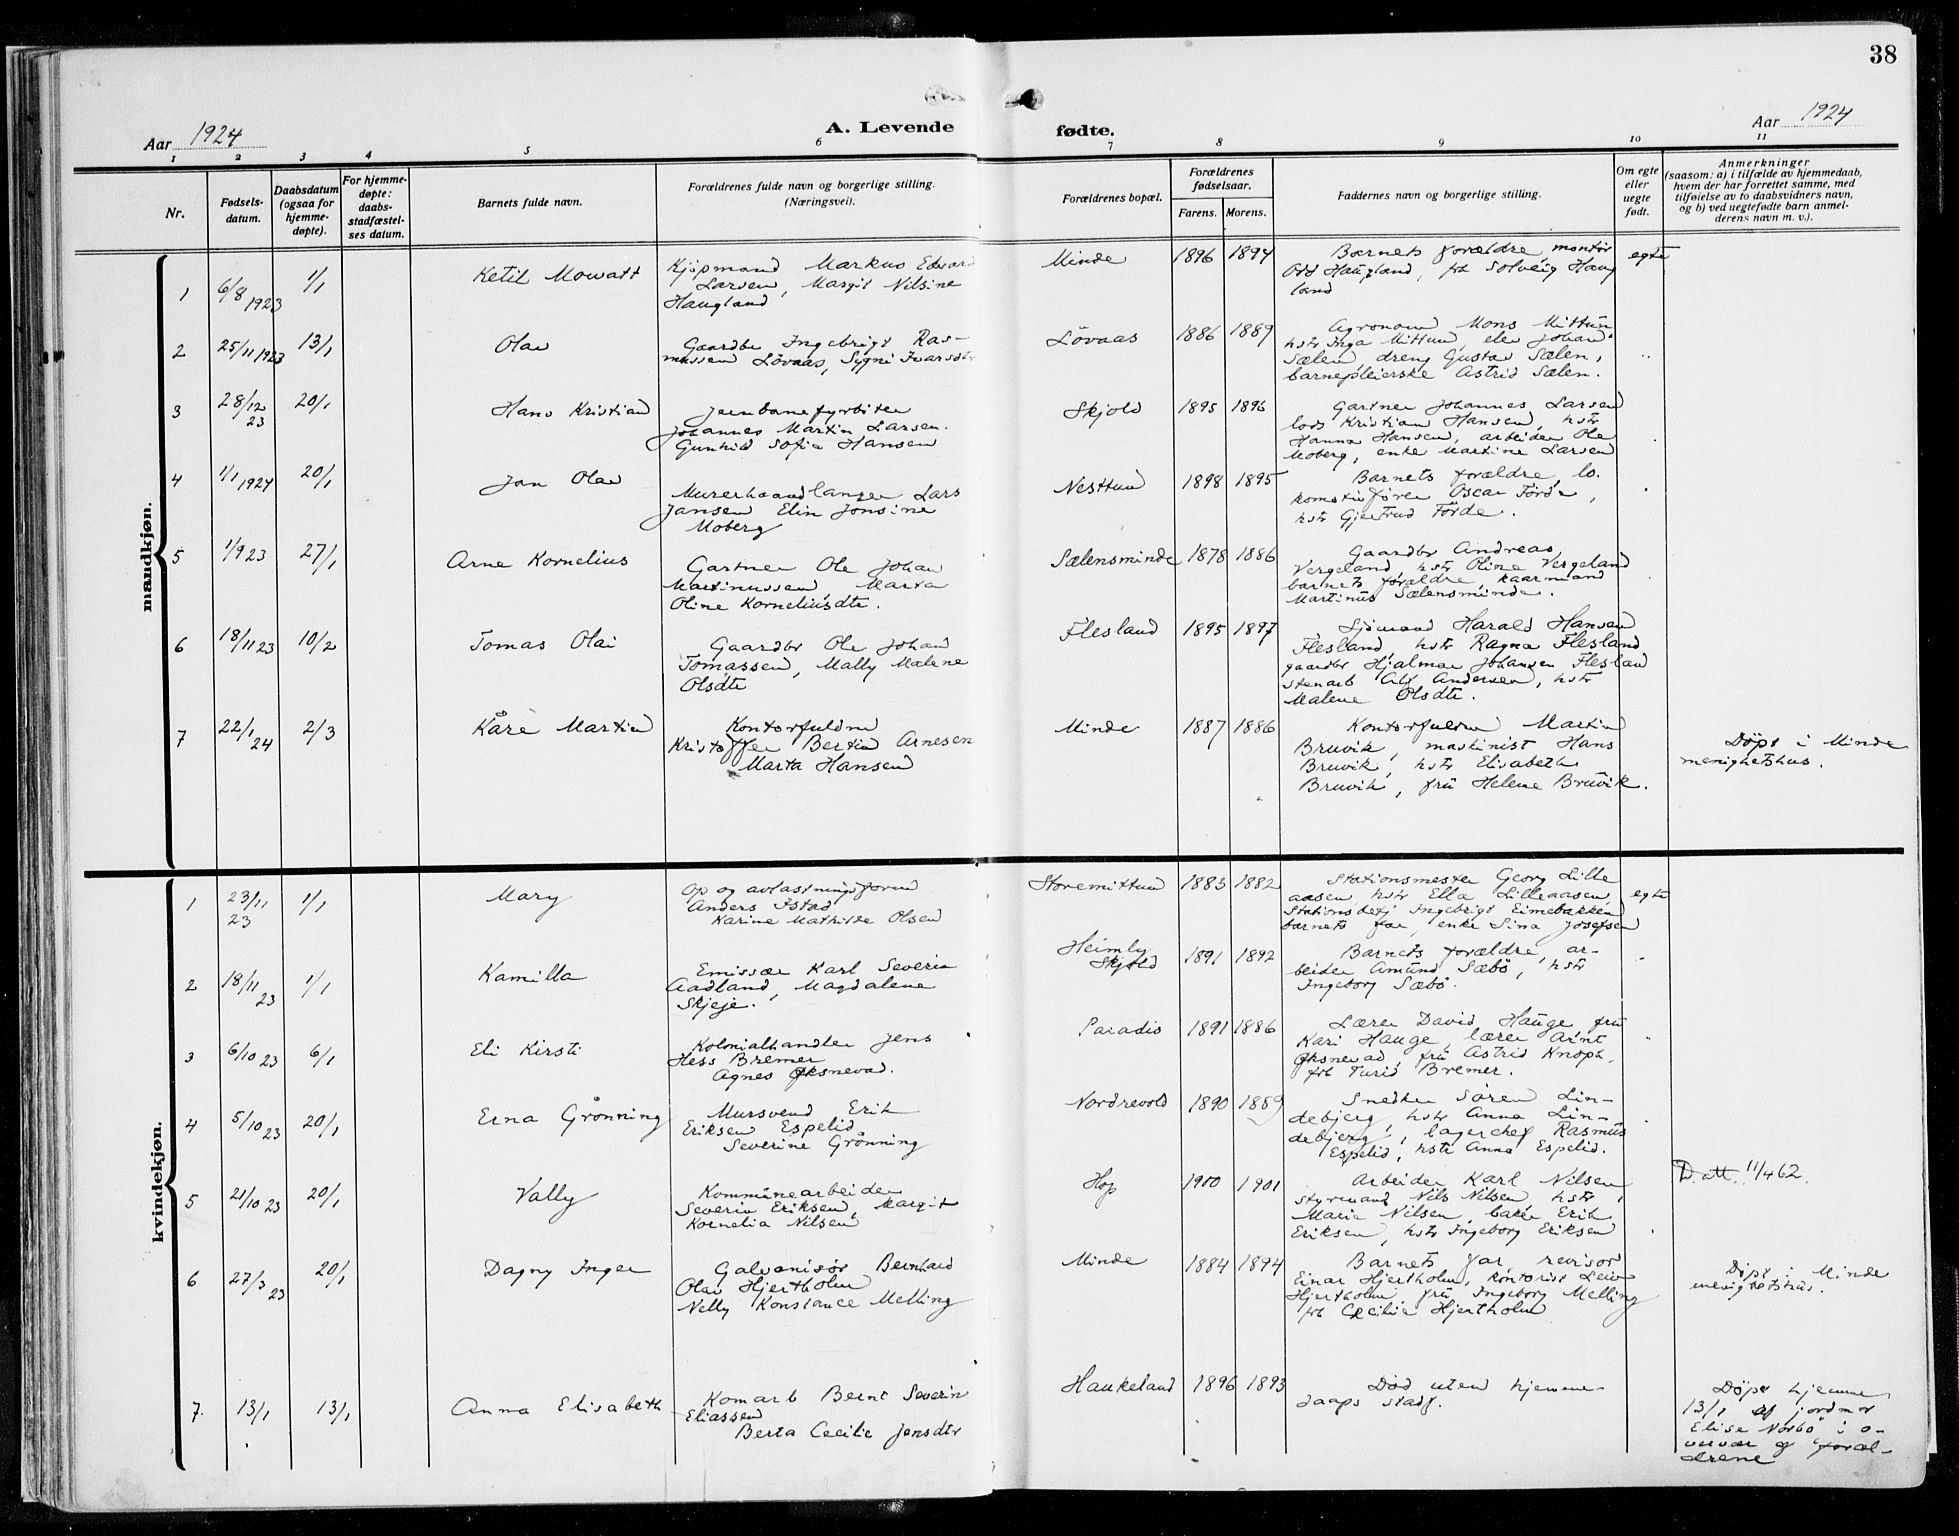 38
Aar 1924
A. Levende fødte.
Aar 1924
1 2 3 4 5 6 7 8 9 10 11
Nr.
Fødselsdatum.
Daabsdatum (ogsaa for hjemmedøpte).
For hjemmedøpte: daabsstadfæstelses datum.
Barnets fulde navn.
Forældrenes fulde navn og borgerlige stilling. (Næringsvei).
Forældrenes bopæl.
Forældrenes fødselsaar.
Farens. Morens.
Faddernes navn og borgerlige stilling.
Om egte eller uegte født.
Anmerkninger
(saasom: a) i tilfælde av hjemmedaab,
hvem der har forrettet samme, med
tilføielse av to daabsvidners navn,
og b) ved uegtefødte barn anmel-
derens navn m. v.).
mandkjøn.
1 6/8 1923 1/1 Ketil Mowatt
Kjøpmand Markus Edvard
Larsen, Margit Nilsine
Haugland
Minde 1896 1894
Barnets forældre, montør
Odd Haugland, frk Solveig Haug
land
egte
2 25/11 1923 13/1 Olav
Gaardbr Ingebrigt Ras-
mussen Lövaas, Sygni Ivarsdtr
Lövaas 1886 1889
Agronom Mons Mittun
hstr Inga Mittun, elev Johan
Sælen, dreng Gustav Sælen,
barnepleierske Astrid Sælen.
3 28/12 23 20/1 Hans Kristian
Jernbanefyrbøter
Johannes Martin Larsen.
Gunhild Sofia Hansen
Skjold 1895 1896
Gartner Johannes Larsen
lods Kristian Hansen, hstr
Hanna Hansen, arbeider Ole
Moberg, enke Martine Larsen
4 1/1 1924 20/1 Jan Olav
Murerhaandlanger Lars
Jansen Elin Jonsine
Moberg
Nesttun 1898 1895
Barnets forældre, lo-
komotivfører Oscar Förde,
hstr Gjertrud Förde.
5 1/9 23 27/1 Arne Kornelius
Gartner Ole Johan
Martinussen, Marta
Oline Korneliusdtr.
Sælensminde 1878 1886
Gaardbr Andreas
Vergeland, hstr Oline Vergeland
barnets forældre, kaarmand
Martinus Sælensminde.
6 18/11 23 10/2 Tomas Olai
Gaardbr Ole Johan
Tomassen, Mally Malene
Olsdtr
Flesland 1895 1897
Sjömand Harald Hansen
Flesland, hstr Ragna Flesland
gaardbr Hjalmar Johansen Flesland
stenarb Alf Andersen, hstr
Malene Olsdtr.
7 22/1 24 2/3 Kåre Martin
Kontorfuldm
Kristoffer Bertin Arnesen
Marta Hansen
Minde 1887 1886
Kontorfuldm Martin
Bruvik, maskinist Hans
Bruvik, hstr Elisabeth
Bruvik, frü Helene Bruvik.
Døpt i Minde
menighetshus.
kvindekjøn.
1 23/11 23 1/1 Mary
Op og avlastningsform
Anders Istad
Karine Mathilde Olsen
Storemittun 1883 1882
Stationsmester Georg Lille
aasen hstr Ella Lilleaasen,
Stationsbetj Ingebrigt Eimebakken
barnets far, enke Sina Josefsen
egte
2 18/11 23 1/1 Kamilla
Emissær Karl Severin
Aadland, Magdalene
Skjeje.
Heimly
Skjold 1891 1892
Barnets forældre, ar-
beider Amund Sæbö, hstr
Ingeborg Sæbö.
3 6/10 23 6/1 Eli Kirsti
Kolonialhandler Jens
Hess Bremer
Agnes Øksnevad.
Paradis 1891 1886
Lærer David Hauge, frü
Kari Hauge, lærer Arnt
Øksnevad, frü Astrid Knoph,
frk Turid Bremer.
4 5/10 23 20/1 Erna Grönning
Mursvend Erik
Eriksen Espelid
Severine Grönning
Nordrevold 1890 1889
Snedker Sören Lin-
debjerg, hstr Anna Lin-
debjerg, lagerchef Rasmus
Espelid, hstr Anna Espelid.
5 21/10 23 20/1 Vally
Kommunearbeider
Severin Eriksen, Margit
Kornelia Nilsen
Hop 1900 1901
Arbeider Karl Nilsen
styrmand Nils Nilsen hstr
Marie Nilsen, baker Erik
Eriksen, hstr Ingeborg Eriksen
D. att. 11/4 62.
6 27/3 23 20/1 Dagny Inger
Galvanisör Bernhard
Olav Hjertholm
Nelly Konstance Melling
Minde 1884 1894
Barnets far, revisor
Einar Hjertholm, kontorist Leiv
Hjertholm, frü Ingeborg Melling
frk Cecilie Hjertholm
Døpt i Minde
menighetshus.
7. 13/1 13/1 Anna Elisabeth
Komarb Bernt Severin
Eliassen
Berta Cecilie Jensdtr
Haukeland 1896 1893
Död uten hjemme-
daaps stadf.
Døpt hjemme
13/1 af jordmor
Elise Norbö i o-
vervær af foræl-
drene